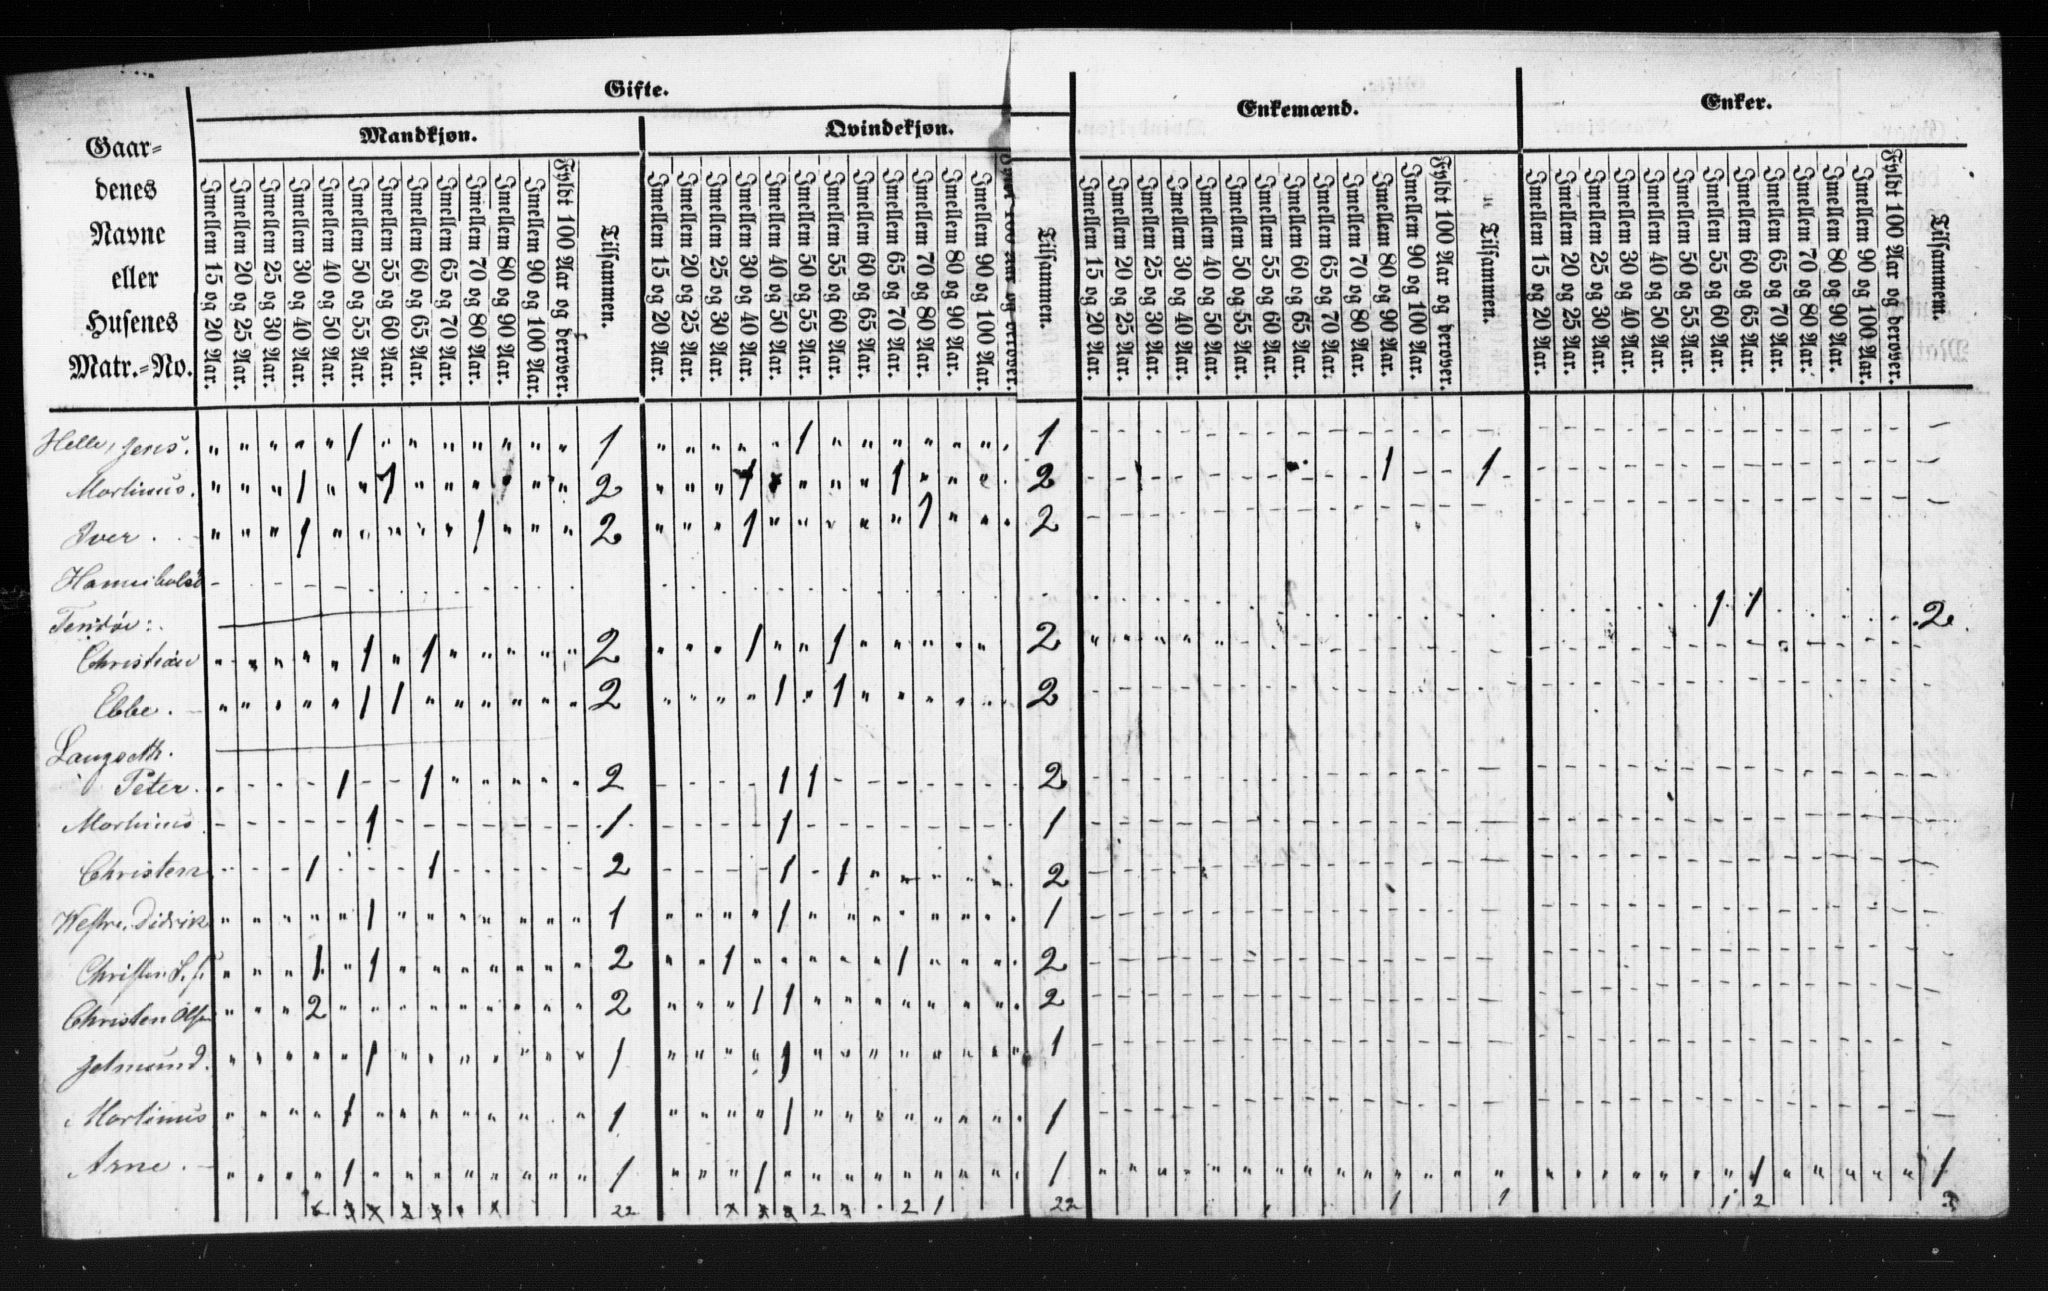 Gifte.
Enkemænd.
Enker.
Mandkjøn.
Qvindekjøn.
Gaar-
denes
Navne
eller
Husenes
Matr.-No.
Imellem 15 og 20 Aar.
Imellem 20 og 25 Aar.
Imellem 25 og 30 Aar.
Imellem 30 og 40 Aar.
Imellem 40 og 50 Aar.
Imellem 50 og 55 Aar.
Imellem 55 og 60 Aar.
Imellem 60 og 65 Aar.
Imellem 65 og 70 Aar.
Imellem 70 og 80 Aar.
Imellem 80 og 90 Aar.
Imellem 90 og 100 Aar.
Fyldt 100 Aar og derover.
Tilsammen.
Imellem 15 og 20 Aar.
Imellem 20 og 25 Aar.
Imellem 25 og 30 Aar.
Imellem 30 og 40 Aar.
Imellem 40 og 50 Aar.
Imellem 50 og 55 Aar.
Imellem 55 og 60 Aar.
Imellem 60 og 65 Aar.
Imellem 65 og 70 Aar.
Imellem 70 og 80 Aar.
Imellem 80 og 90 Aar.
Imellem 90 og 100 Aar.
100 Aar og derover.
Tilsammen.
Imellem 15 og 20 Aar.
Imellem 20 og 25 Aar.
Imellem 25 og 30 Aar.
Imellem 30 og 40 Aar.
Imellem 40 og 50 Aar.
Imellem 50 og 55 Aar.
Imellem 55 og 60 Aar.
Imellem 60 og 65 Aar.
Imellem 65 og 70 Aar.
Imellem 70 og 80 Aar.
Imellem 80 og 90 Aar.
Imellem 90 og 100 Aar.
Fyldt 100 Aar og derover.
Tilsammen.
Imellem 15 og 20 Aar.
Imellem 20 og 25 Aar.
Imellem 25 og 30 Aar.
Imellem 30 og 40 Aar.
Imellem 40 og 50 Aar.
Imellem 50 og 55 Aar.
Imellem 55 og 60 Aar.
Imellem 60 og 65 Aar.
Imellem 65 og 70 Aar.
Imellem 70 og 80 Aar.
Imellem 80 og 90 Aar.
Imellem 90 og 100 Aar.
Fyldt 100 Aar og derover.
Tilsammen.
Helle, Jens. 1 1 1 1
Mortinus. 1 1 2 1 1 2 1 1
Iver. 1 1 2 1 1 2
1 1 2
Christian 1 1 2 1 1 2
Ebbe. 1 1 2 1 1 2
Langseth.
Peter. 1 1 2 1 1 2
Mortinus 1 1 1 1
Christen 1 1 2 1 1 2
Westre. Didrik 1 1 1 1
Christen 1 1 2 1 1 2
Christen Olsen 2 2 1 1 2
Jetmund. 1 1 1 1
Mortinus 1 1 1 1
Arne. 1 1 1 1 1 1
22 2 2 1 22 1 1 1 2 3